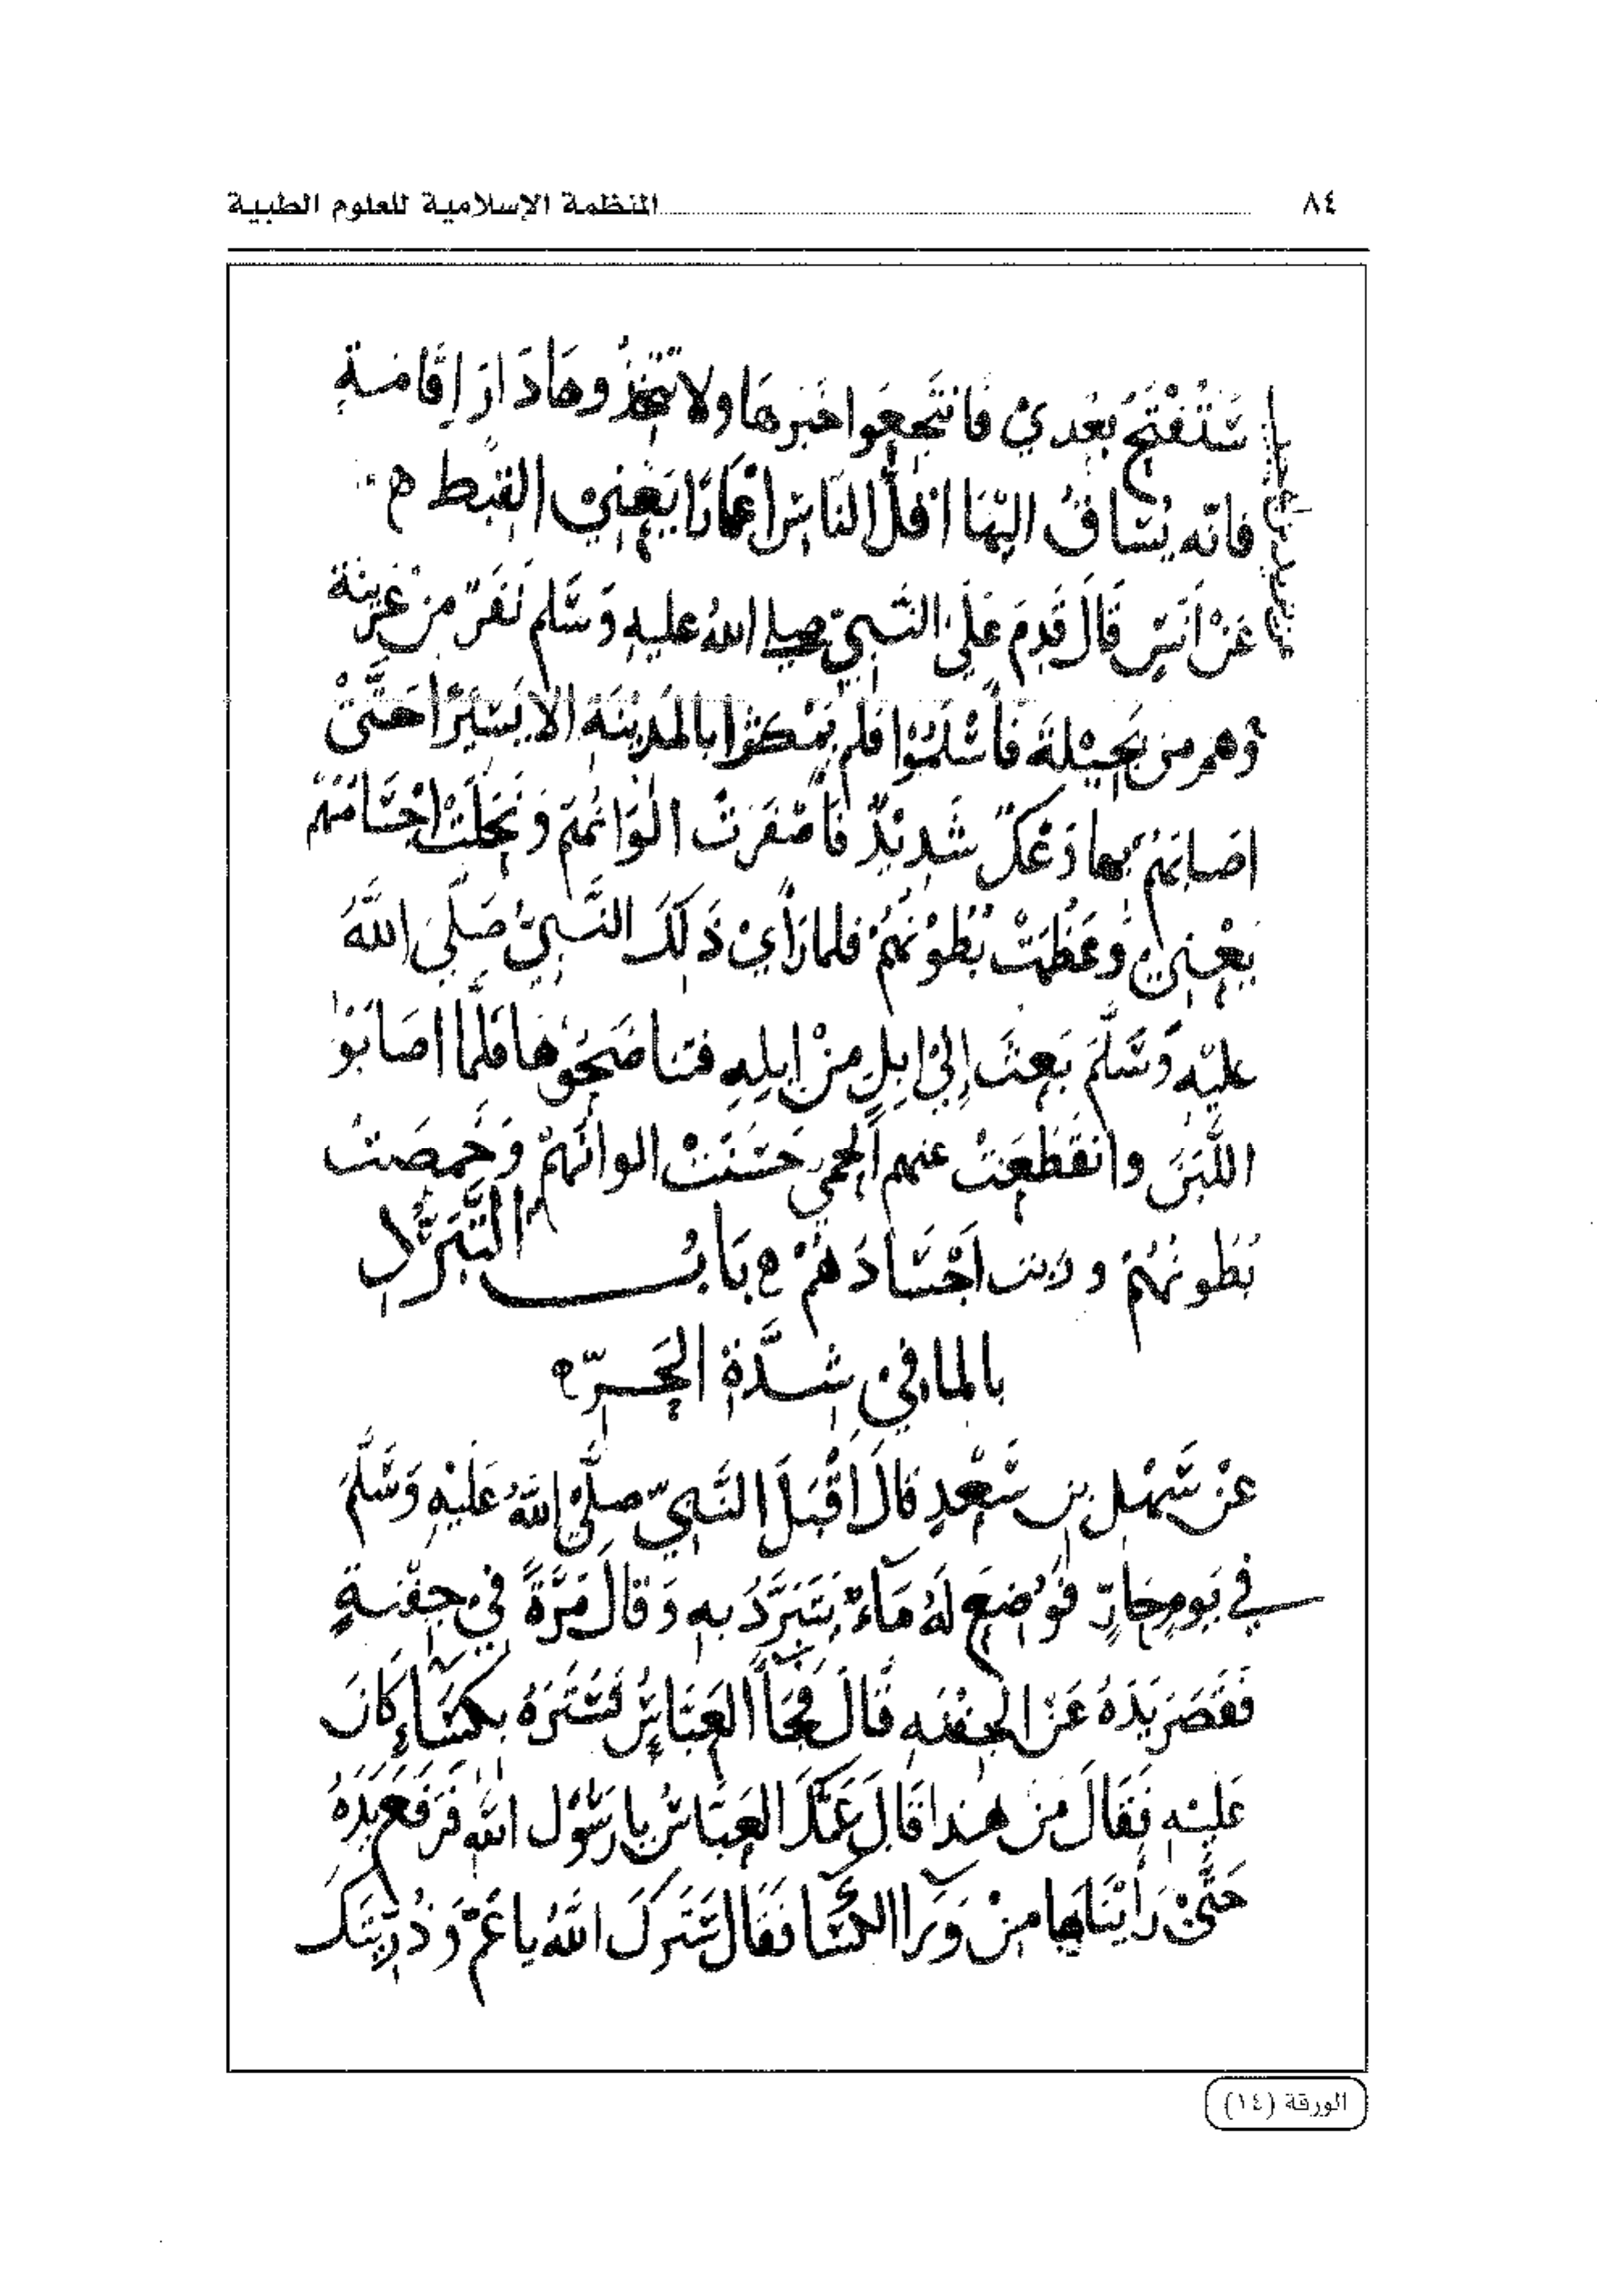 ٨٤ المنظمة الإسلامية للعلوم الطبية
سَتُفْتَحُ بَعْدِي فَانتَجِعُوا خَيرهَا ولا تتخِذُوهَا دَارَ إِقَامَةٍ
فانه يُسَاقُ اليْهَا اقلُّ النَاسِ اعْمَارًا يَعْنِي القِبط
عَنْ اَنَسٍ قَالَ قَدِمَ عَلَى النَّبِيّ صلى اللهُ عليهِ وَسَّلم نَفَرٌ مِنْ عُرَينَة
وَهم من بَجِيْلَةَ فَأسْلَمُوا فلم يَمْكثوا بالمَدِينَة الا يَسِيرًا حَتَّىْ
اصَابَهُمْ بها وَعْكٌ شَدِيْدٌ فَاصْفَرَتْ الْوَانُهُمْ وَنَحَلَتْ اجْسَامُهُمْ
يَعْنِي وَعَظُمَتْ بُطُوْنُهُمْ فلما رَأي ذَلِكَ النَّبِيُّ صَلَّى اللَّهُ
عليْهِ وَسَّلَمَ بَعَثَ إلِيْ ابِلٍ مِنْ إبِلِهِ فَلَمَّا اصَابُوْا
اللَّبَنَ وانقَطَعَتْ عنهم الحمى حَسُنَتْ الوانُهُمْ وَخَمِصَتْ
بُطُونُهُمْ وربت اَجْسَادَهُمْ بَابُ التَّبَرُّدِ
بالما في شدَّة الحَرّ
عَنْ سَهْلِ بن سَعْدٍ قَالَ اَقْبَلَ النَّبِيّ صلَّى اللَّهُ عَلَيْهِ وَسَّلَمَ
في يَومٍ حَارٍّ فَوُضِعَ لَهُ مَآءٌ يَتَبَرَّدُ بهِ وَقالَ مَرَّةً فِي جفْنَةٍ
فَقَصَرَ يَدَهُ عَنْ الجفنَه قَالَ فَجَآ العَبَاسُ فَسَتَرَهُ بِكِسَاءٍ كَانَ
عَليْهِ فَقَالَ مَنْ هَذا قَالَ عَمّكَ العَبَاسُ يا رَسُوْل اللَّه فَرَفَعَ يَدَهُ
حَتَّىْ رَأيْنَاهَا مِنْ وَرَآ الكِسَا فَقَال سَتَرَكَ اللَّهُ يا عَمّ وَذُرِّيَتَكَ
الورقة (١٤)